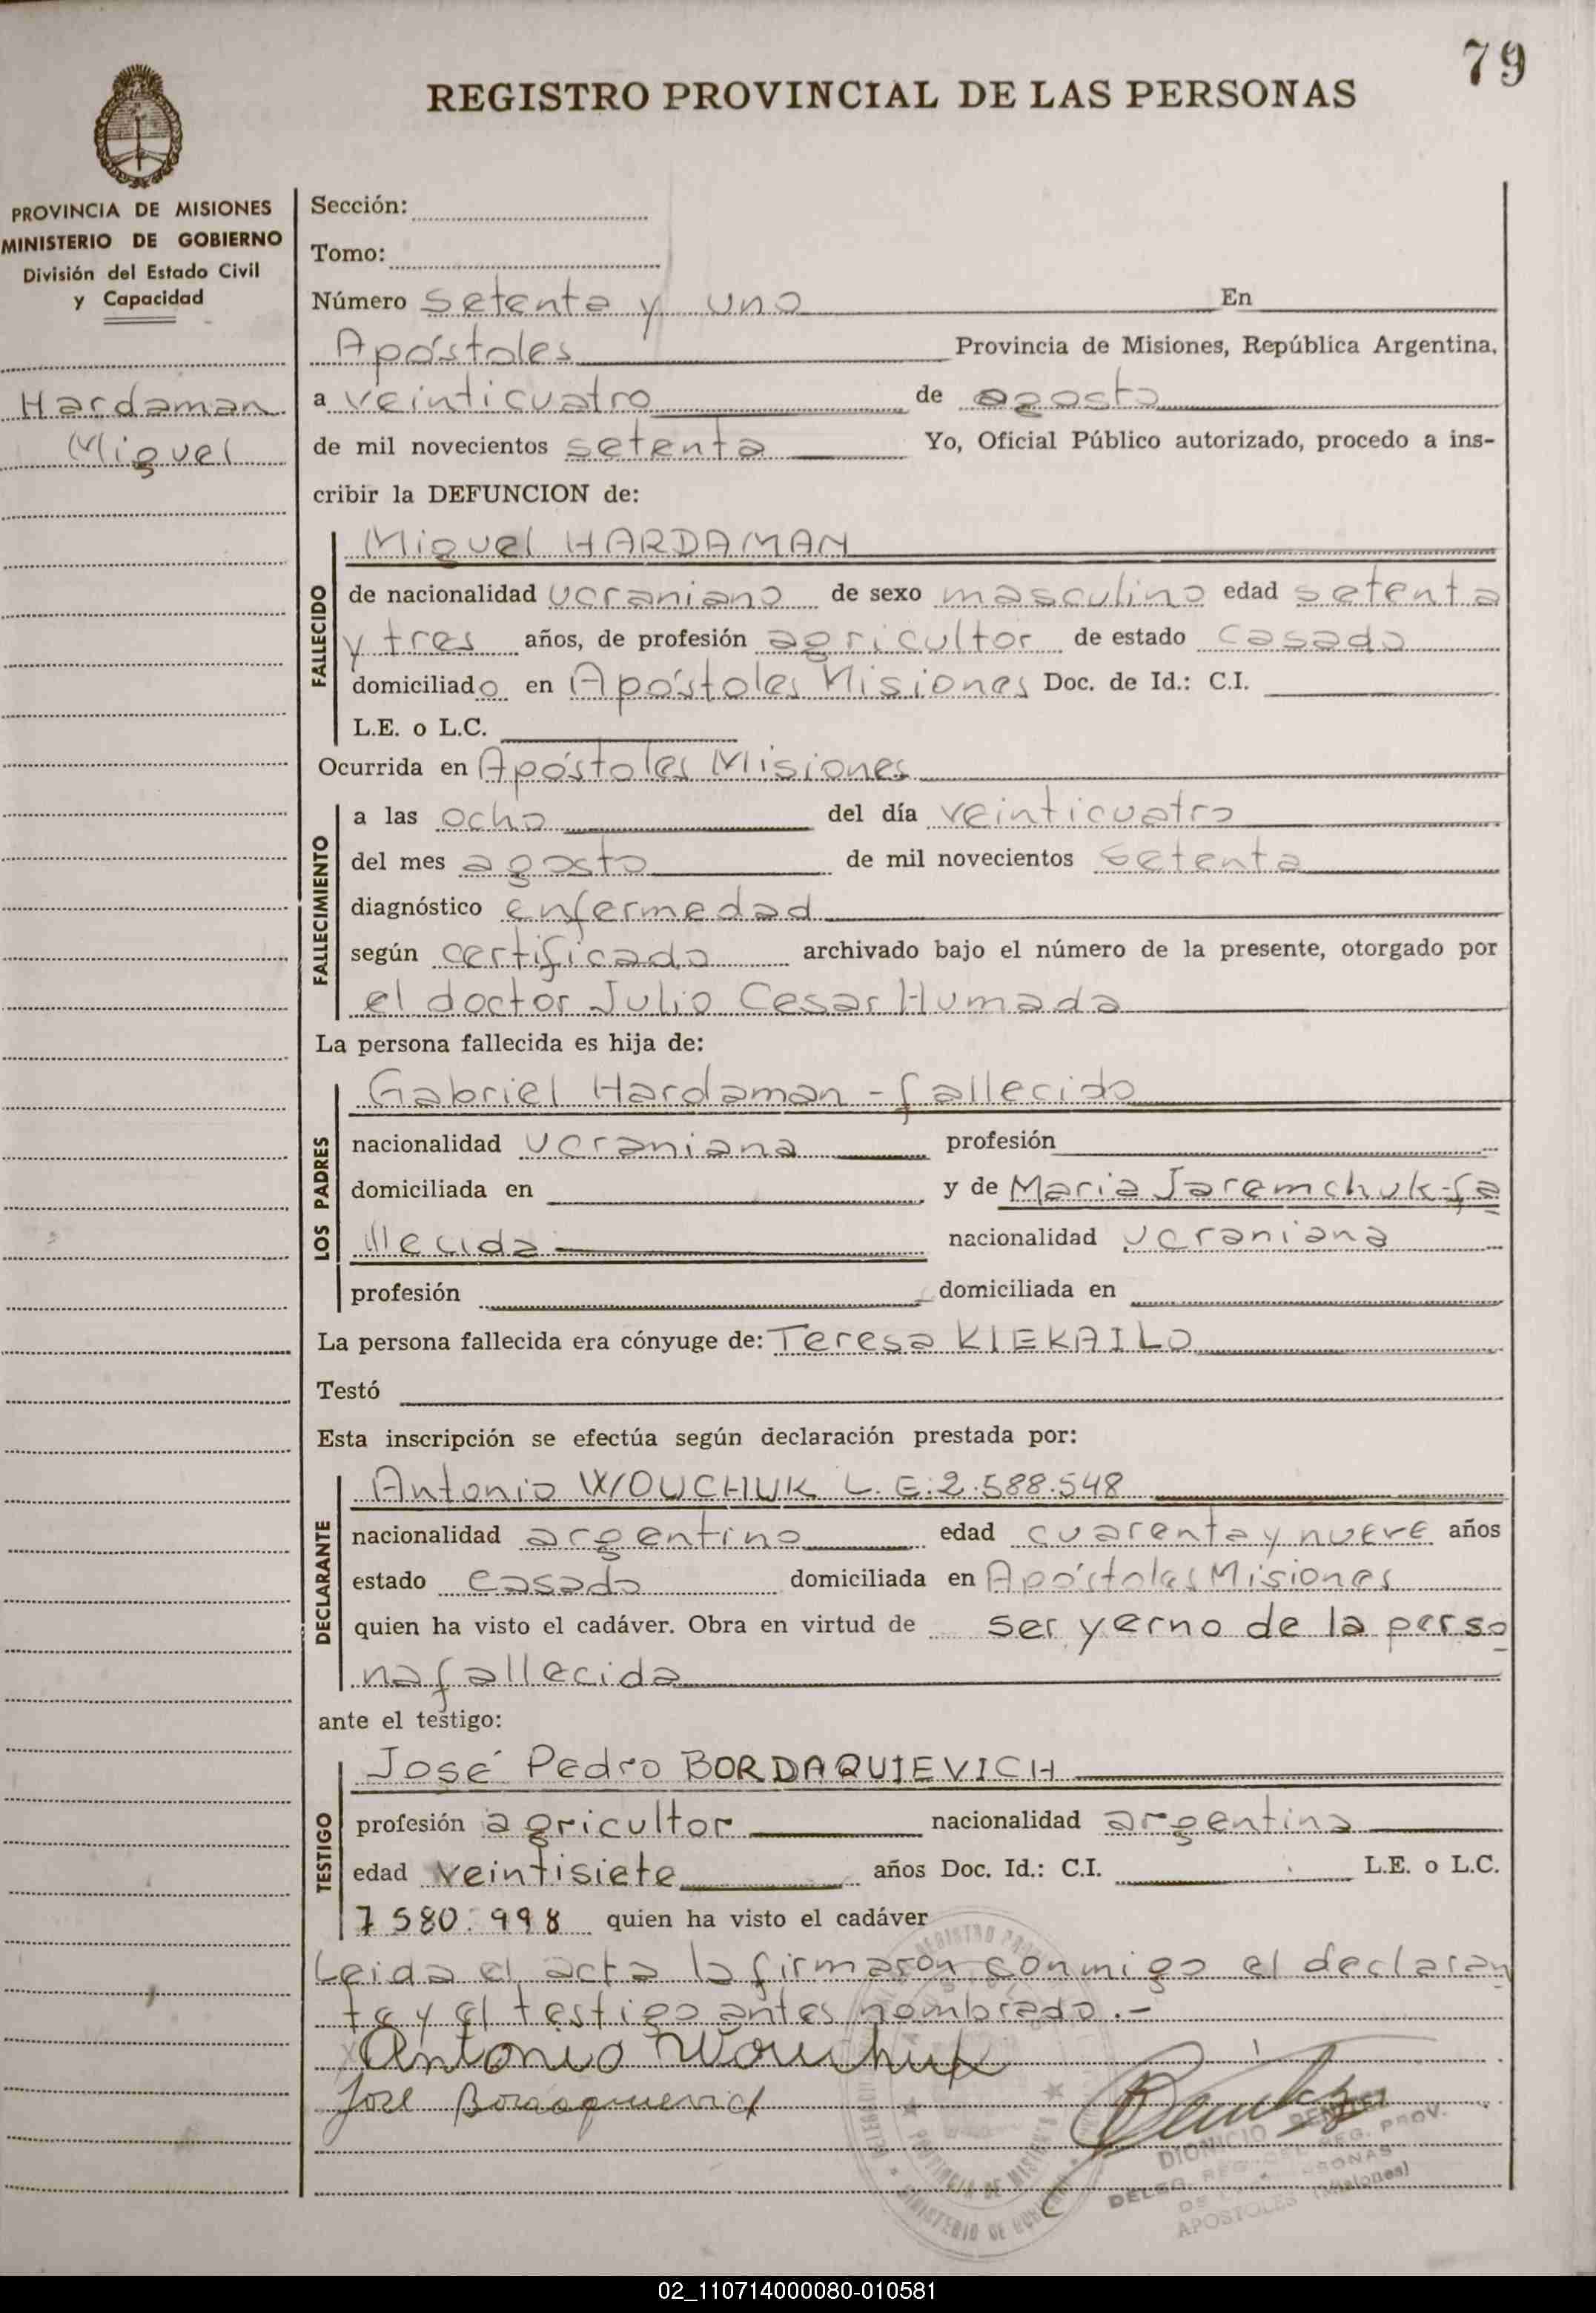 79
REGISTRO PROVINCIAL DE LAS PERSONAS
PROVINCIA DE MISIONES
MINISTERIO DE GOBIERNO
División del Estado Civil
y Capacidad
Hardaman
Miguel
Sección:
Tomo:
Número setenta y uno En
Apóstoles Provincia de Misiones, República Argentina,
a veinticuatro de agosto
de mil novecientos setenta Yo, Oficial Público autorizado, procedo a ins-
cribir la DEFUNCION de:
FALLECIDO
Miguel HARDAMAN
de nacionalidad ucraniano de sexo masculino edad setenta
y tres años, de profesión agricultor de estado casado
domiciliado en Apóstoles Misiones Doc. de Id.: C.I.
L.E. o L.C.
Ocurrida en Apóstoles Misiones
FALLECIMIENTO
a las ocho del día veinticuatro
del mes agosto de mil novecientos setenta
diagnóstico enfermedad
según certificado archivado bajo el número de la presente, otorgado por
el doctor Julio Cesar Humada
La persona fallecida es hija de:
LOS PADRES
Gabriel Hardaman - fallecido
nacionalidad ucraniana profesión
domiciliada en y de Maria Jaremchuk-fa
llecida nacionalidad ucraniana
profesión domiciliada en
La persona fallecida era cónyuge de: Teresa KLEKAILO
Testó
Esta inscripción se efectúa según declaración prestada por:
DECLARANTE
Antonio WOUCHUK L.E:2.588.548
nacionalidad argentino edad cuarenta y nueve años
estado casado domiciliada en Apóstoles Misiones
quien ha visto el cadáver. Obra en virtud de ser yerno de la perso
na fallecida
ante el testigo:
TESTIGO
José Pedro BORDAQUIEVICH
profesión agricultor nacionalidad argentina
edad veintisiete años Doc. Id.: C.I. L.E. o L.C.
7580.998 quien ha visto el cadáver
Leida el acta la firmaron conmigo el declaran
te y el testigo antes nombrado.-
Antonio Wouchuk
José Bordaquievich
DIONICIO BENITEZ
DELEG. REG. DEL REG. PROV.
DE LAS PERSONAS
APOSTOLES (Misiones)
PROVINCIA DE MISIONES
MINISTERIO DE GOBIERNO
02_110714000080-010581